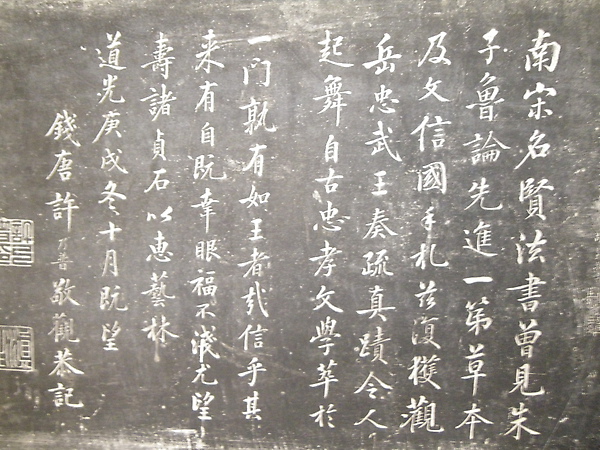 南宋名賢法書曾見朱
子魯論先進一第草本
及文信國手札茲復獲觀
岳忠武王奏疏真蹟令人
起舞自古忠孝文學萃於
一門孰有如王者哉信乎其
来有自既幸眼福不淺尤望
壽諸貞石以惠藝林
道光庚戌冬十月既望
錢唐許乃普敬觀恭記